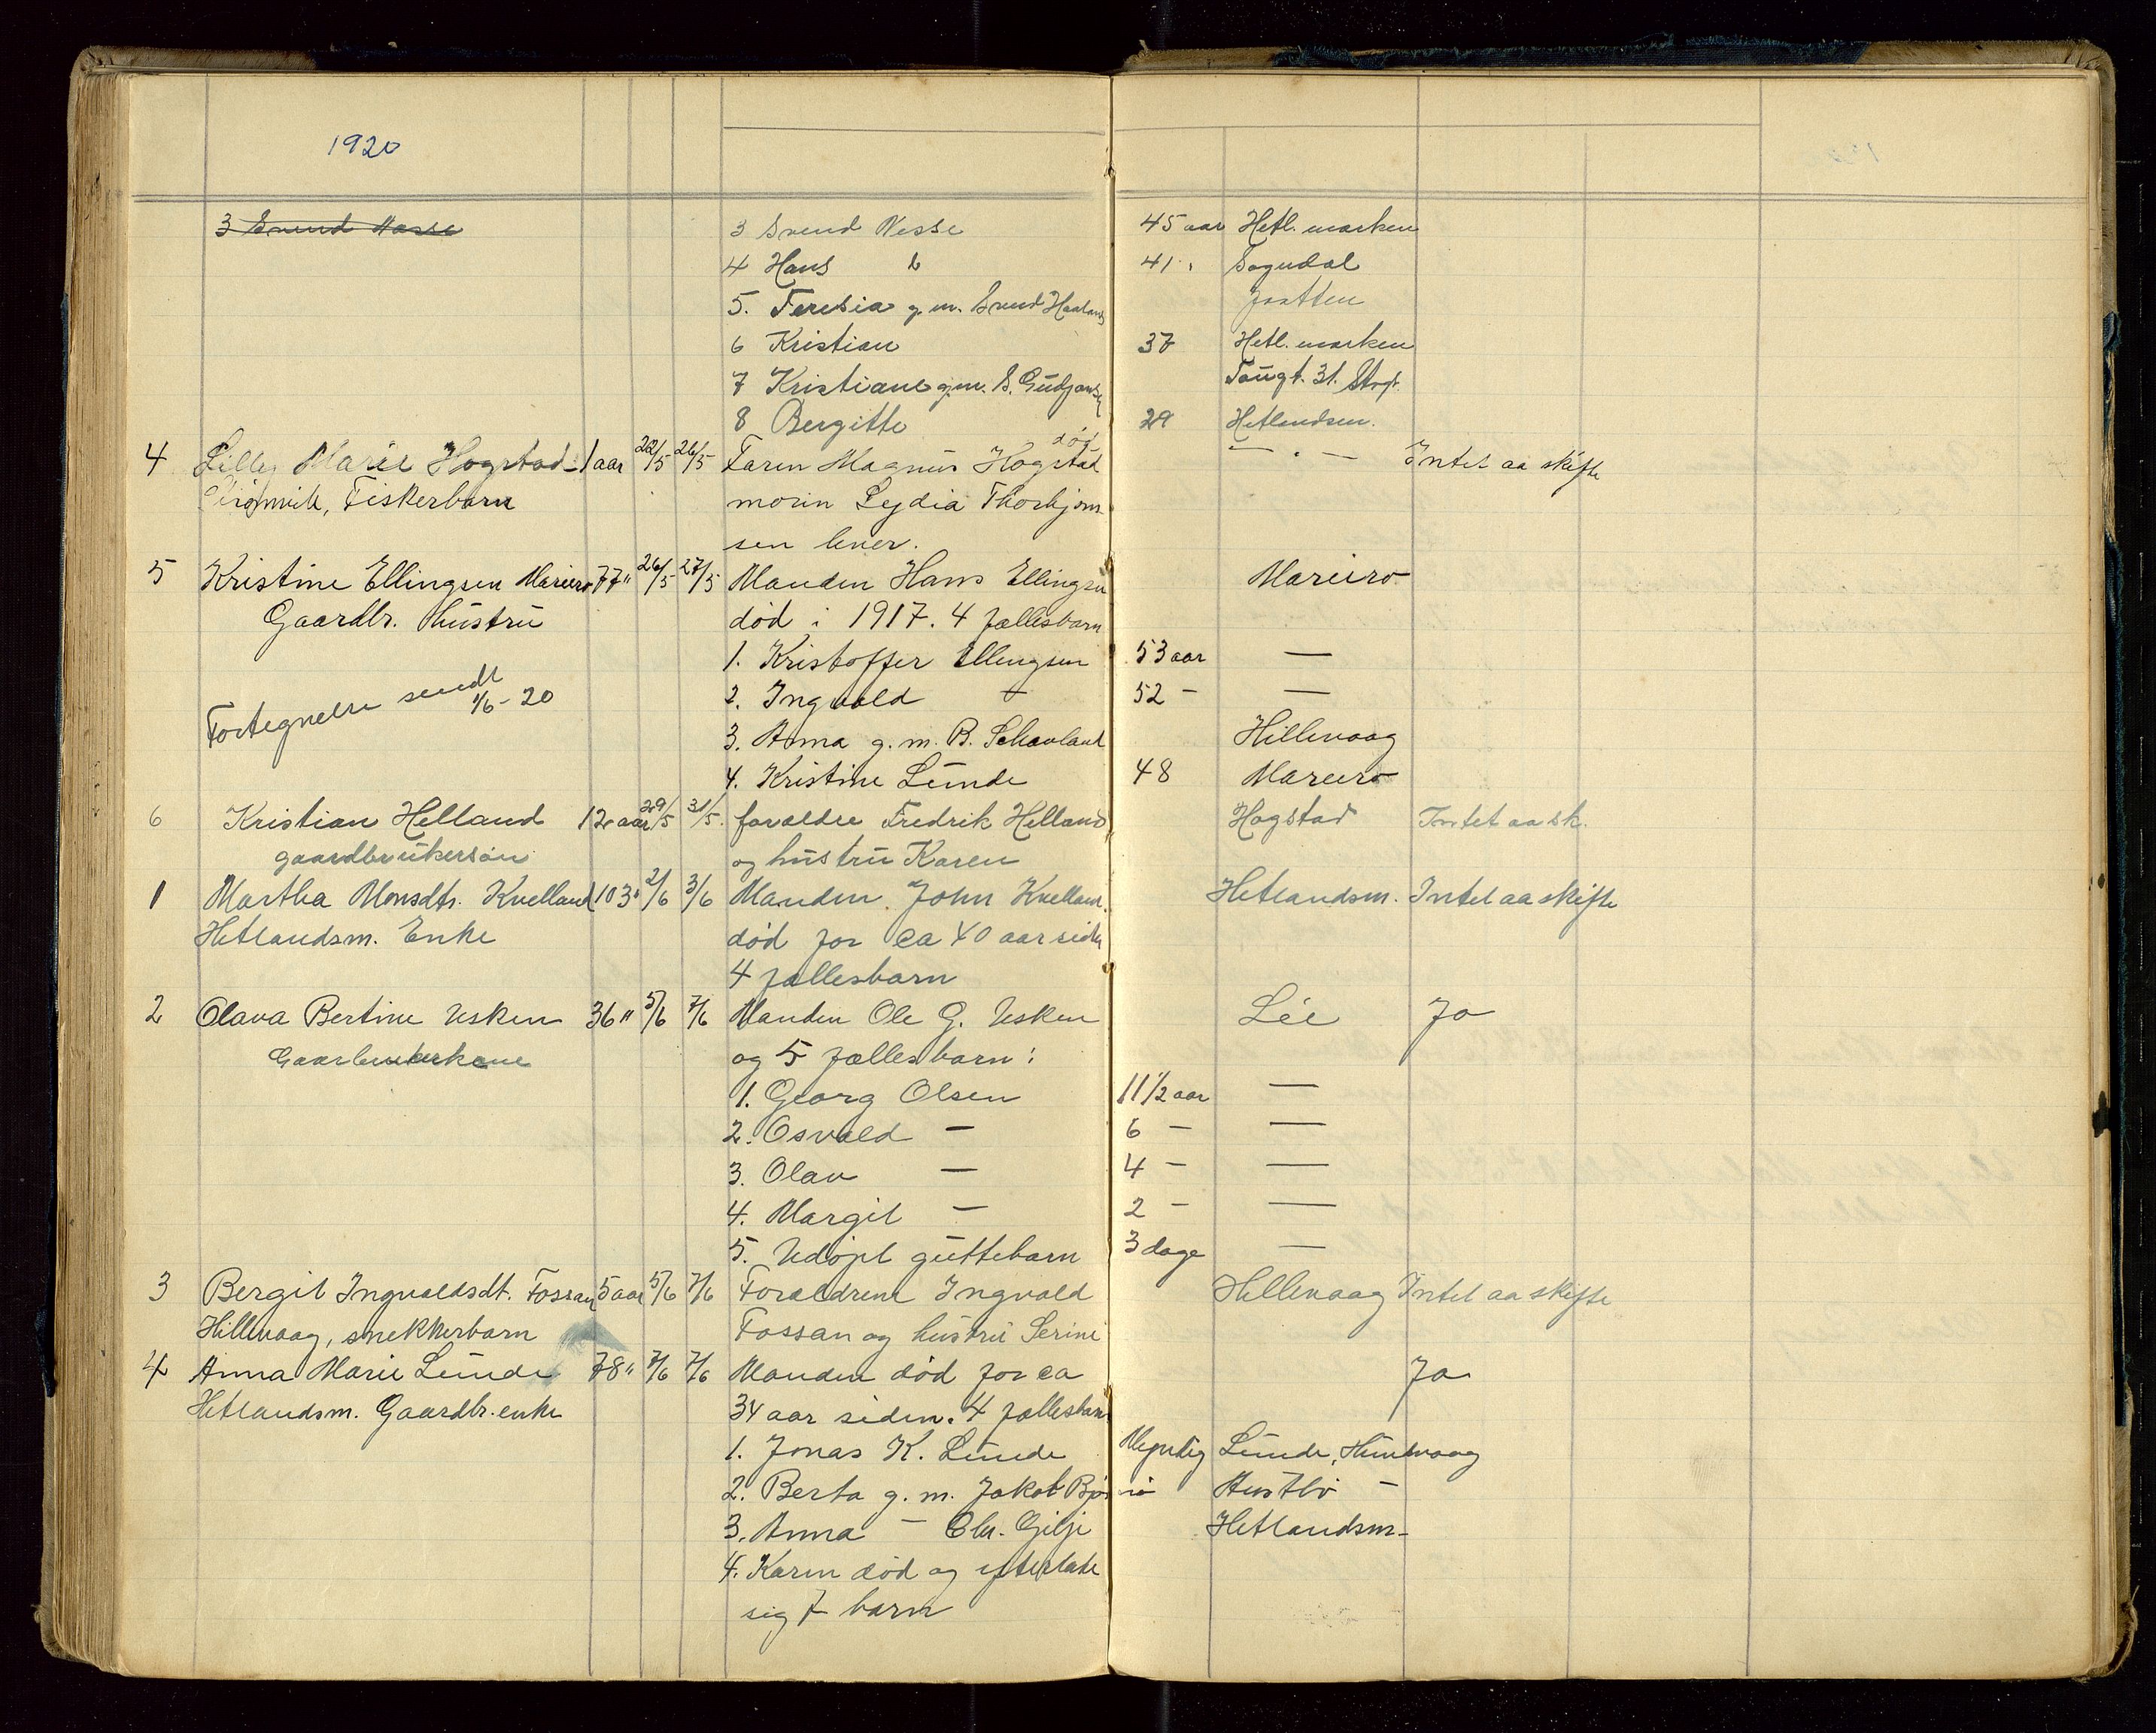 1920
3 Svend Nesse 3 Svend Nesse 45 aar Hetl. marken
4 Hans 41 " Sogndal
5. Teresia g. m. Svend Haaland Jaatten
6 Kristian 37 Hetl. marken
7 Kristiane g.m. S. Gudjonsen 31. Stvgr.
8 Bergitte 29 Hetlandsm.
død
4 Lilly Marie Hogstad 1 aar 22/5 26/5 Faren Magnus Hogstad — " — Intet aa skifte
Fiskerbarn moren Lydia Thorbjørn-
sen lever.
5 Kristine Ellingsen Mariero 77 " 26/5 27/5 Manden Hans Ellingsen Mariero
Gaardbr. hustru død i 1917. 4 fællesbarn
1. Kristoffer Ellingsen 53 aar —
Fortegnelse sendt 1/6-20 2. Ingvald — 52 — —
3. Anna g. m. B. Schavland Hillevaag
4. Kristine Lunde 48 Mariero
6 Kristian Helland 12 aar 29/5 31/5. forældre Fredrik Helland Hogstad Intet aa sk.
gaardbrukersøn og hustru Karen
1 Martha Monsdtr. Kvelland 103 " 2/6 3/6 Manden John Kvelland Hetlandsm. Intet aa skifte
Hetlandsm. Enke død for ca 40 aar siden
4 fællesbarn
2 Olava Bertine Usken 36 " 5/6 7/6 Manden Ole G. Usken Lée Ja
Gaarbrukerkone og 5 fællesbarn:
1. Georg Olsen 11 1/2 aar —
2. Osvald — 6 — —
3. Olav — 4 — —
4. Margit — 2 — —
5. Udøpt guttebarn 3 dage —
3 Bergit Ingvaldsdt. Fossan 5 aar 5/6 7/6 Forældrene Ingvald Hillevaag Intet aa skifte
Hillevaag, snekkerbarn Fossan og hustru Serine
4 Anna Marie Lunde 78 " 7/6 7/6 Manden død for ca Ja
Hetlandsm. Gaardbr. enke 34 aar siden. 4 fællesbarn
1. Jonas K. Lunde Myndig Lunde, Hundvaag
2. Berta g. m. Jakob Austbø —
3. Anna — Chr. Gilje Hetlandsm.
4. Karen død og efterlate
sig 7 barn